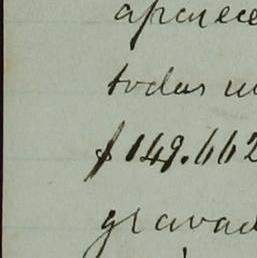 aparece
todas
$149.662
gravad